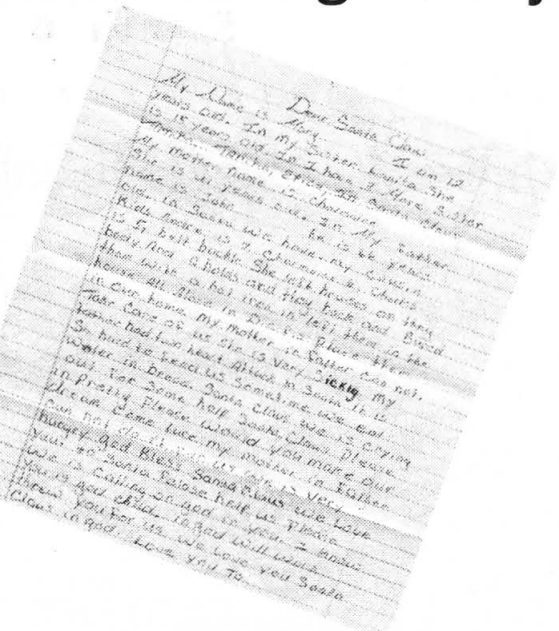 Dear Santa Claus
My Name is Mary. I am 12
years old. In my Sister Wanita She
is 15 years old. In I have 2 More Sister
My mother name is Charmaine
She is 41 years old. In My father
name is John he is 66 years
old. In Santa we have my cousin
Kids There is 2 Charmaine & Chuck
is It belt buckle She left bruises on they
body And G holds and they back and Burnd
them with a hot iron in left them in the
house All Alone in Din Din Please them
in our home. My mother in Father can not.
Take Care of us she is very sickly my
father had two heart Attack in Santa it is
So hard to feed us Sometime we eat
Water in bread. Santa Claus we is crying
out For Some hell Santa Claus Please
in Pretty Please would you make our
dream Come true my mother in Father
can not do it for us is very
hungry god Bless Santa Claus we Love
you to Santa Please help us Please
We is calling on god in you. I know
you is god child in god will work
threw you For us We Love you Santa
Claus in god. Love you To